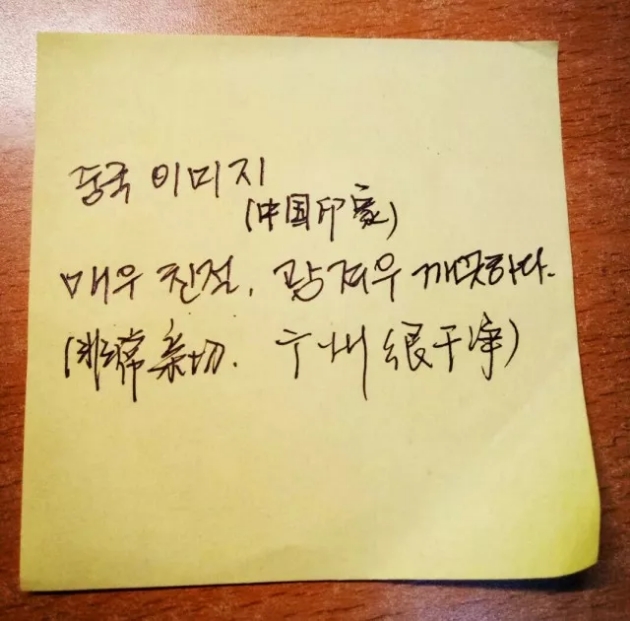 중국 이미지
(中国印象)
매우 친절, 광저우 깨끗하다.
(非常亲切. 广州很干净)